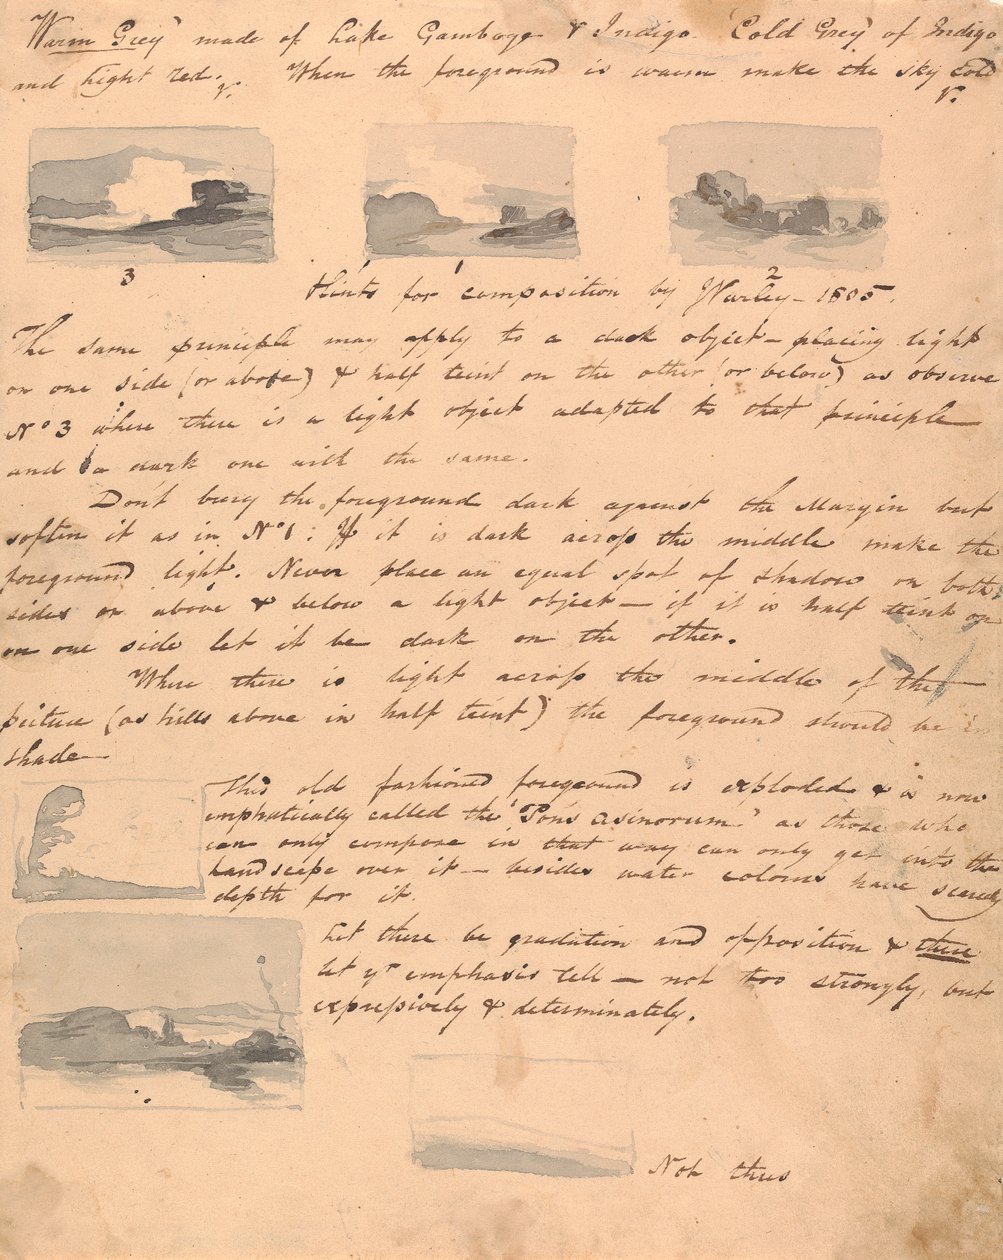 Warm Grey made of Lake Gamboge & Indigo Cold Grey of Indigo
and Light red. When the foreground is warm make the sky cold
V. V.
3 1 2
Hints for composition by J Varley - 1805.
The same principle may apply to a dark object - placing light
on one side (or above) & half teint on the other (or below) as observe
No 3 where there is a light object adapted to that principle
and a dark one with the same.
Don't bury the foreground dark against the Margin but
soften it as in No 1. If it is dark across the middle make the
foreground light. Never place an equal spot of shadow on both
sides or above & below a light object - if it is half teint on
on one side let it be dark on the other.
Where there is light across the middle of the
picture (as hills above in half teint) the foreground should be in
shade
This old fashioned foreground is exploded & is now
emphatically called the "Pons Asinorum" as those who
can only compose in that way can only get into the
Landscape over it - besides water colours have scarcely
depth for it.
Let there be gradation and opposition & there
let yr emphasis tell - not too strongly, but
expressively & determinately.
Not thus